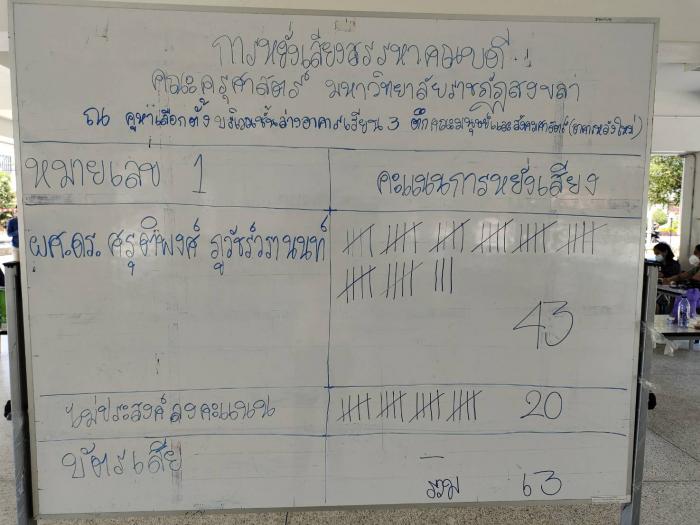 การหยั่งเสียงสรรหาคณบดี
คณะครุศาสตร์ มหาวิทยาลัยราชภัฏสงขลา
ณ คูหาเลือกตั้ง บริเวณชั้นล่างอาคารเรียน 3 ตึกคณะมนุษย์และสังคมศาสตร์ (อาคารหลังใหม่)
หมายเลข 1
คะแนนการหยั่งเสียง
ผศ.ดร. ศรุตพงศ์ ภูวัชร์วรานนท์
43
ไม่ประสงค์ลงคะแนน
20
บัตรเสีย
-
รวม 63